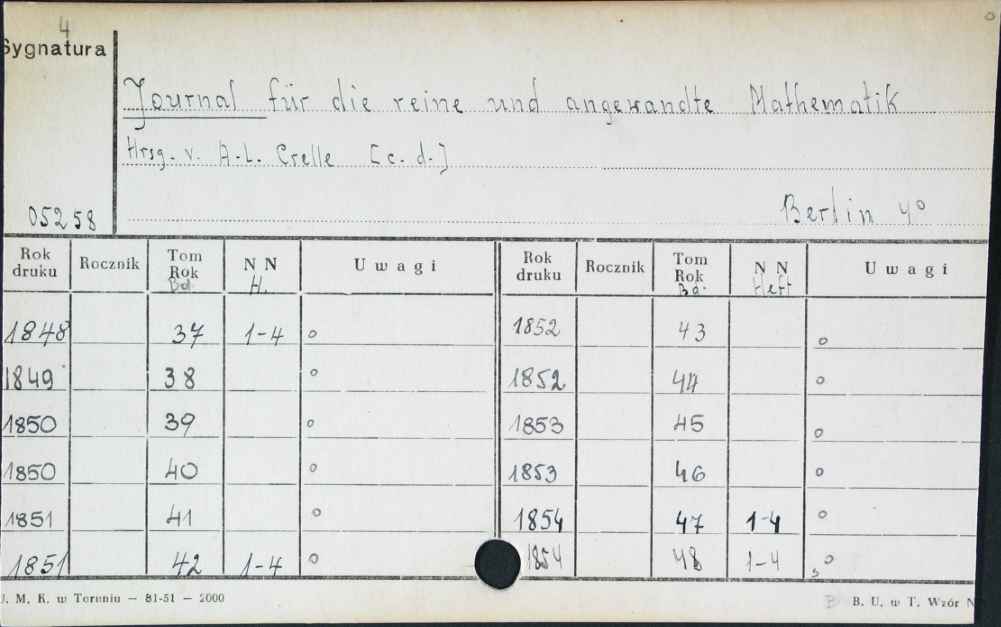 4
Sygnatura
Journal für die reine und angewandte Mathematik
Hrsg. v. A.L. Crelle [c.d.]
05258
Berlin 4°
Rok druku Rocznik Tom Rok Bd. NN H. Uwagi Rok druku Rocznik Tom Rok Bd. NN Heft Uwagi
1848 37 1-4 o 1852 43 o
1849 38 o 1852 44 o
1850 39 o 1853 45 o
1850 40 o 1853 46 o
1851 41 o 1854 47 1-4 o
1851 42 1-4 o 1854 48 1-4 o
U. M. K. w Toruniu — 81-51 — 2000
B. U. w T. Wzór N